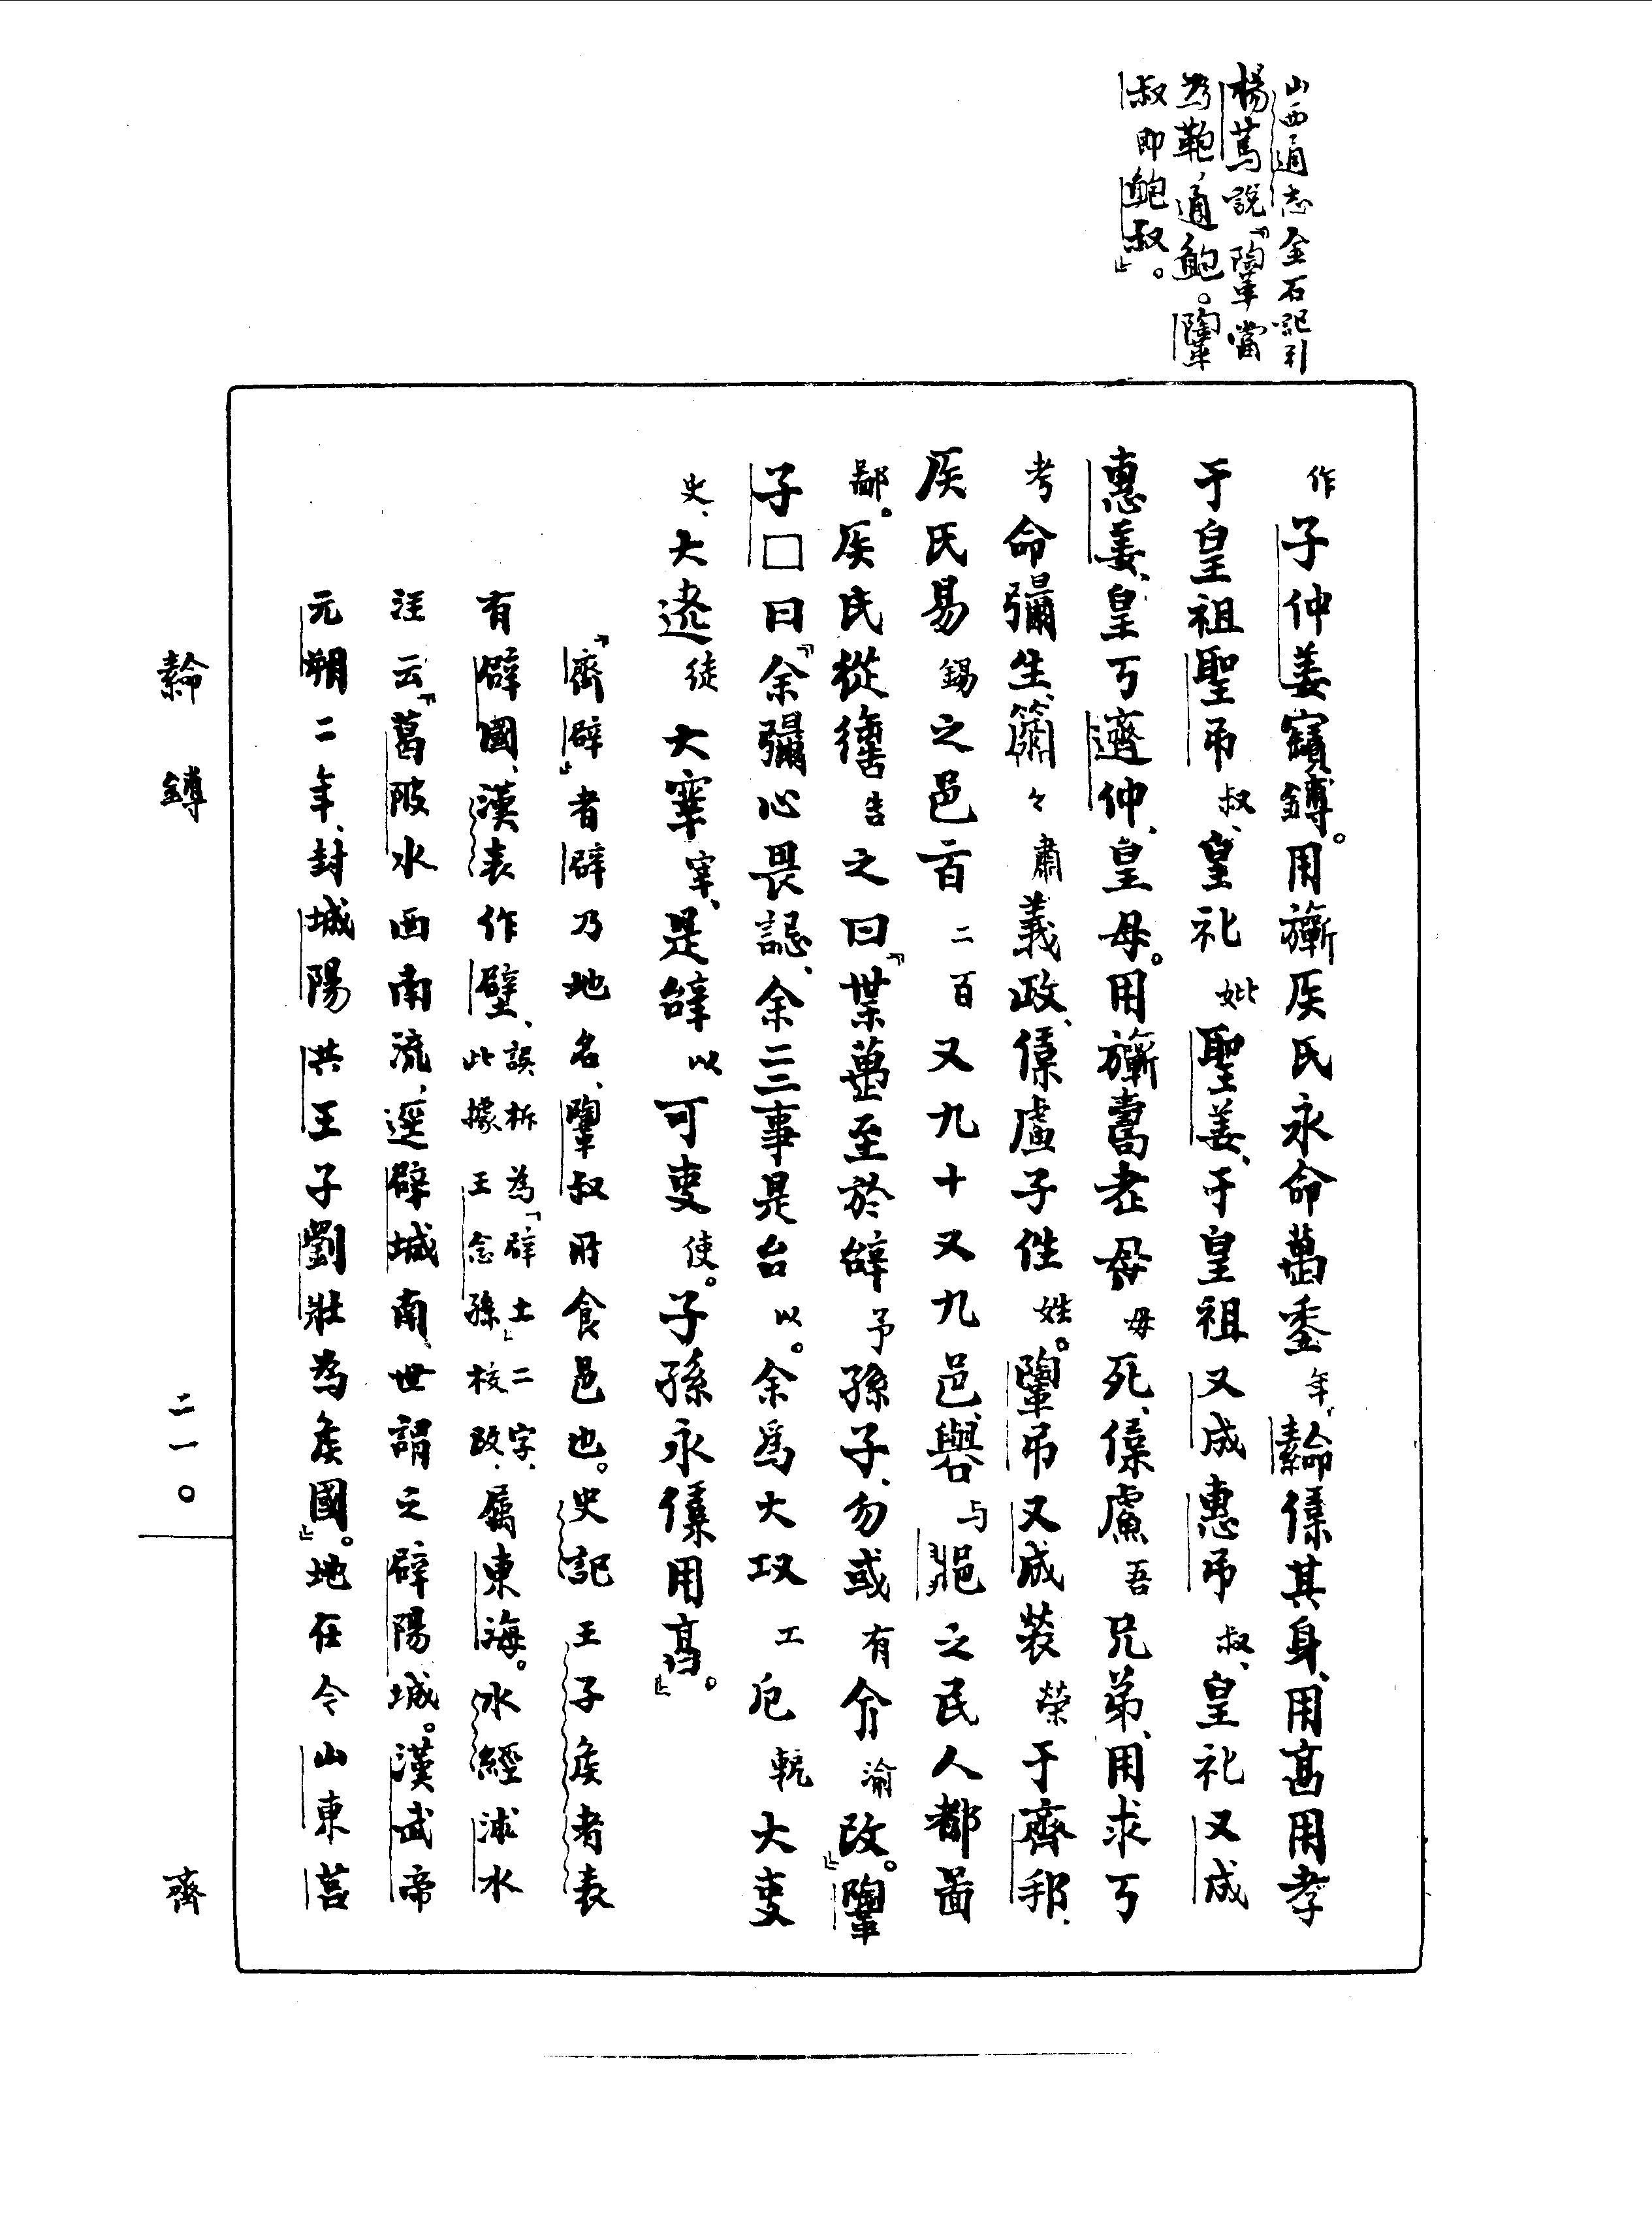 山西通志金石記引
楊篤說『鞄當
為鞄,通鮑。
叔即鮑叔。』
作子仲姜寶鎛。用旂侯氏永命萬年年,素命保其身,用亯用孝
于皇祖聖弔叔、皇祀妣聖姜,于皇祖又成惠弔叔、皇祀又成
惠姜、皇丂遵仲、皇母。用旂壽老母毋死,保盧吾兄弟,用求丂
考命彌生,簫々肅義政,保盧子性姓。弔又成裝榮于齊邦,
厌氏易錫之邑二百二百又九十又九邑,與与之民人都啚
鄙。厌氏從告之曰:『枼萬至於辝予孫子,勿或有俞渝改。』
子□曰:『余彌心畏誋,余三事是台以。余為大攻工㡯軛大吏
史、大徒大宰宰,是辝以可吏使。子孫永保用亯。』
『齊辟』者辟乃地名,叔所食邑也。史記王子侯者表
有辟國,漢表作壁,誤析為「辟土」二字,此據王念孫校改,屬東海。水經沭水
注云『葛陂水西南流,逕辟城南世謂之辟陽城。漢武帝
元朔二年,封城陽共王子劉壯為侯國。』地在今山東莒
鎛
二一〇
齊